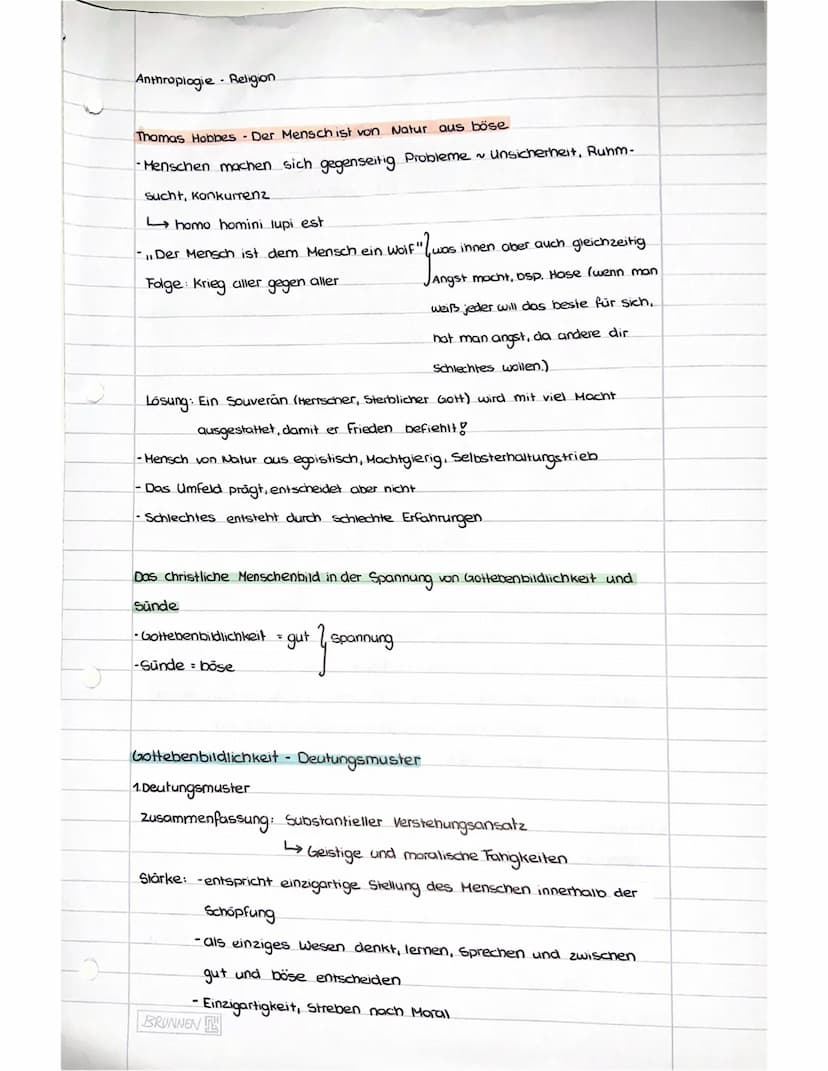 Anthroplogie - Religion
Thomas Hobbes - Der Mensch ist von Natur aus böse
- Menschen machen sich gegenseitig Probleme ~ Unsicherheit, Ruhm-
sucht, Konkurrenz
↳ homo homini lupi est
- „Der Mensch ist dem Mensch ein Wolf" } was ihnen aber auch gleichzeitig
Folge: Krieg aller gegen aller
Angst macht, bsp. Hase (wenn man
weiß jeder will das beste für sich,
hat man angst, da andere dir
Schlechtes wollen.)
Lösung: Ein Souverän (Herrscher, Sterblicher Gott) wird mit viel Macht
ausgestattet, damit er Frieden befiehlt!
- Mensch von Natur aus egoistisch, Machtgierig, Selbsterhaltungstrieb
- Das Umfeld prägt, entscheidet aber nicht
- Schlechtes entsteht durch schlechte Erfahrungen
Das christliche Menschenbild in der Spannung von Gottebenbildlichkeit und
Sünde
- Gottebenbildlichkeit = gut } Spannung
- Sünde = böse
Gottebenbildlichkeit - Deutungsmuster
1. Deutungsmuster
Zusammenfassung: Substantieller Verstehungsansatz
↳ Geistige und moralische Fähigkeiten
Stärke: - entspricht einzigartige Stellung des Menschen innerhalb der
Schöpfung
- als einziges Wesen denkt, lernen, sprechen und zwischen
gut und böse entscheiden
- Einzigartigkeit, Streben nach Moral
BRUNNEN